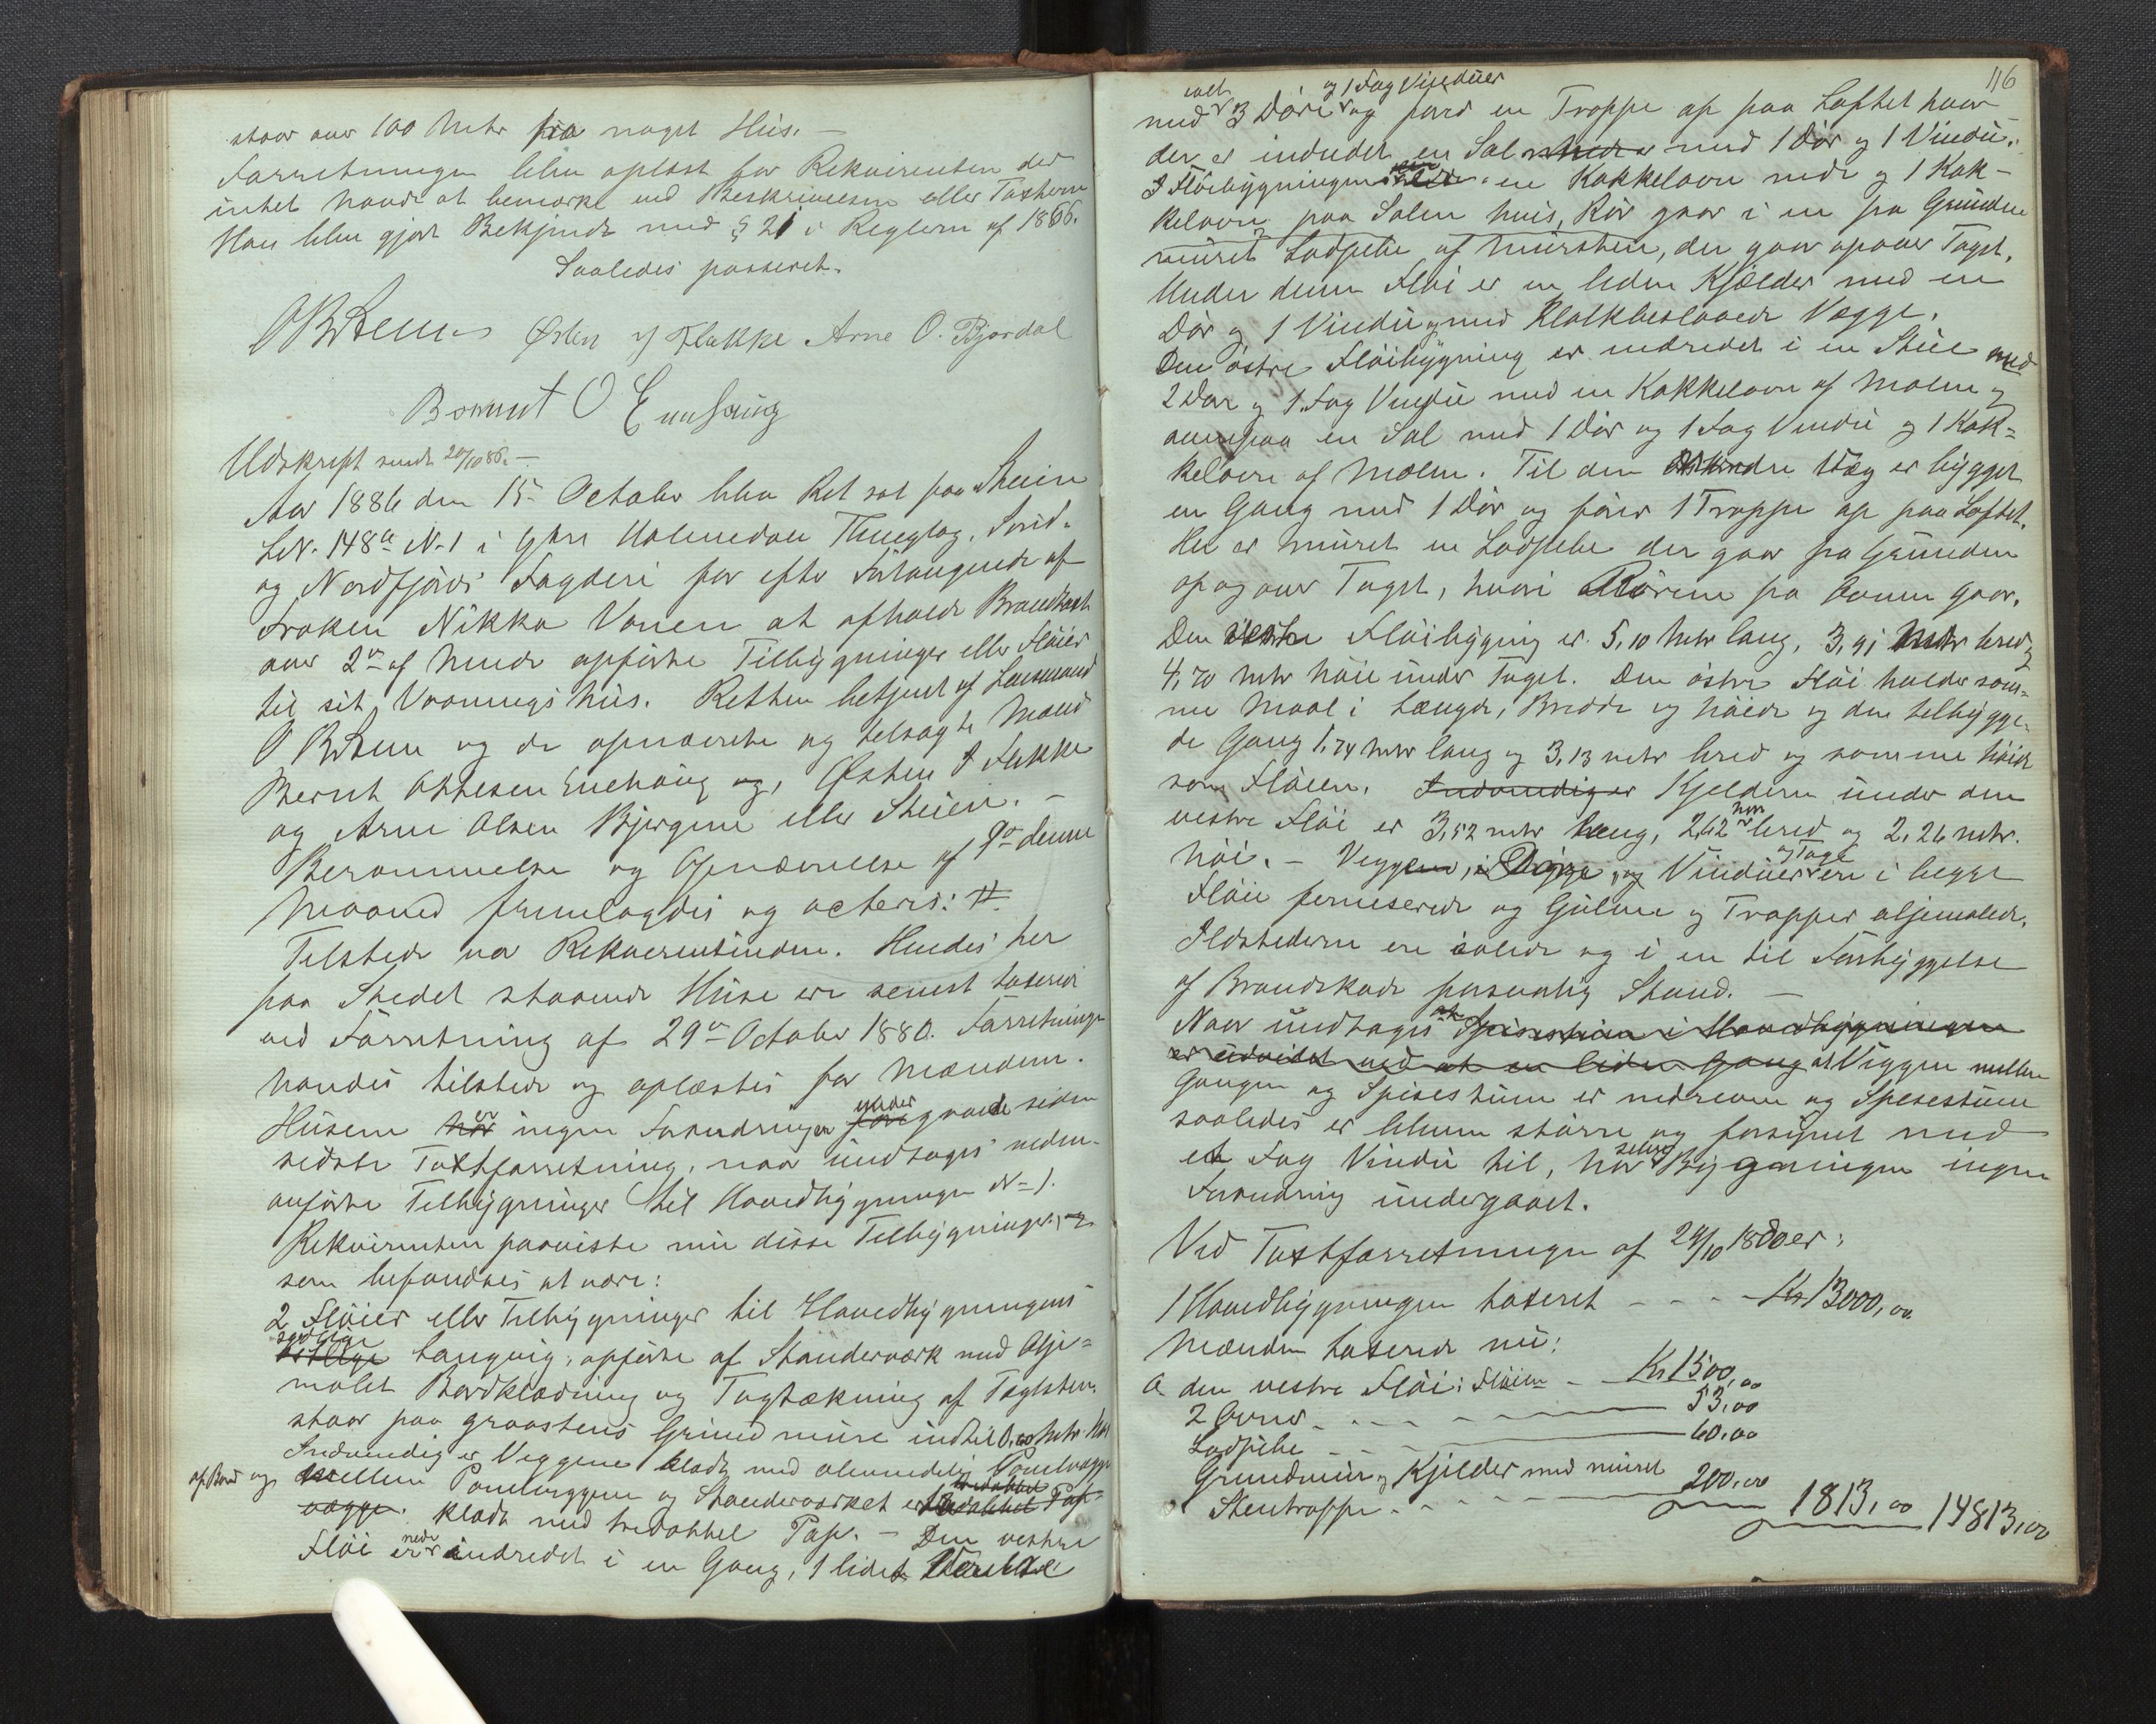 staar over 100 Metr fra noget Huus. —
Forretningen blev oplæst for Rekvirenten der
intet havde at bemærke ved Beskrivelsen eller Taxterne
Han blev gjort Bekjendt med § 21 i Reglerne af 1886.
Saaledes passeret.
O B Steen Østen Flakke Arne O. Bjordal
Bernt O Enehaug
Udskrift sendt 20/10 86. —
Aar 1886 den 15 Octobr blev Ret sat paa Steien
LN. 148a N. 1 i Ytre Holmedals Thinglag, Sønd-
og Nordfjords Fogderi for efter Forlangende af
Frøken Nikka Vonen at afholde Brandtaxt
over 2de af hende opførte Tilbygninger eller Fløier
til sit Vaaningshus. Retten betjent af Lensmand
O B Steen og de opnævnte og tilsagte Mænd
Bernt Ottesen Enehaug og, Østen Flakke
og Arne Olsen Bjergene eller Steien. —
Berammelse og Opnævnelse af 9de denne
Maaned fremlagdes og acteres: #
Tilstede var Rekvirentinden. Hendes her
paa Stedet staaende Huse ere senest taxerede
ved Forretning af 29de October 1880. Forretningen
havdes tilstede og oplæstes for Mændene.
er under
Husene har ingen Forandringer foregaaede siden
sidste Taxtforretning, naar undtages neden-
anførte Tilbygninger til Hovedbygningen N 1.
Rekvirenten paaviste nu disse Tilbygninger,
som befandtes at være:
2 Fløier eller Tilbygninger til Hovedbygningens
sydlige
østlige Langvæg, opførte af Stænderværk med Olje-
malet Bordklædning og Tagtækning af Taglsten,
staar paa graastens Grundmure indtil 0,60 Metr høi
Indvendig er Veggene klædt med almindelig Panelvægge
af Bord og mellem Panelveggene og Stænderværket er tredobbel Pap-
vægge. klædt med tredobbel Pap. — Den vestre
nede
Fløi er indredet i en Gang, 1 lidet Værelse
116
og 1 Fag Vinduer
med 3 Døre og fører en Trappe op paa Loftet hvor
der er indredet en Sal med 1 Dør og 1 Vindu.
I Fløibygningen er en Kakkelovn nede og 1 Kak-
kelovn paa Salen hvis, Rør gaar i en fra Grunden
muret Ladpibe af Mursten, der gaar opover Taget.
Under denne Fløi er en liden Kjælder med en
Dør og 1 Vindu og med Klakbeslaaede Vægge.
Den østre Fløibygning er indredet i en Stue med
2 Dør og 1 Fag Vindu med en Kakkelovn af Malm og
ovenpaa en Sal med 1 Dør og 1 Fag Vindu og 1 Kak=
kelovn af Malm. Til den Væg er bygget
en Gang med 1 Dør og fører 1 Trappe op paa Loftet.
Her er muret en Ladpibe der gaar fra Grunden
op og over Taget, hvori Rørene fra Ovnen gaar.
Den vestre Fløibygnig er 5,10 Metr lang, 3,91 Metr bred og
4,70 Metr høi under Taget. Den østre Fløi holder sam-
me Maal i Længde, Bredde og høide og den tilbygge-
de Gang 1,74 Metr lang og 3,13 metr bred og samme høide
som Fløien. Indvendig er Kjelderen under den
vestre Fløi er 3,52 metr lang, 2,62 bred og 2,26 metr.
og Tage
høi. — Veggene, i Døre, og Vinduer ere i begge
Fløie ferniserede og Gulvene og Trapper oljemalede.
Ildstederne ere solide og i en til Forbyggelse
af Brandskade forsvarlig Stand. —
Naar undtages at Spisestuen i Hovedbygningen
er udvidet ved at en liden Gang at Veggen mellem
Gangen og Spisestuen er nedreven og Spisestuen
saaledes er bleven større og forsynet med
selve
et Fag Vindu til, har Bygningen ingen
Forandring undergaaet.
Ved Taxtforretningen af 29/10 1880 er:
1 Hovedbygningen taxeret - - - - Kr 13000,00
Mændene taxerede nu:
a den vestre Fløi: Fløien - Kr 1500,00
2 Ovne - - - - 53,00
Ladpibe - - - - 60,00
Grundmur og Kjelder med muret
Stentrappe - - - - 200,00 1813,00 14813,00